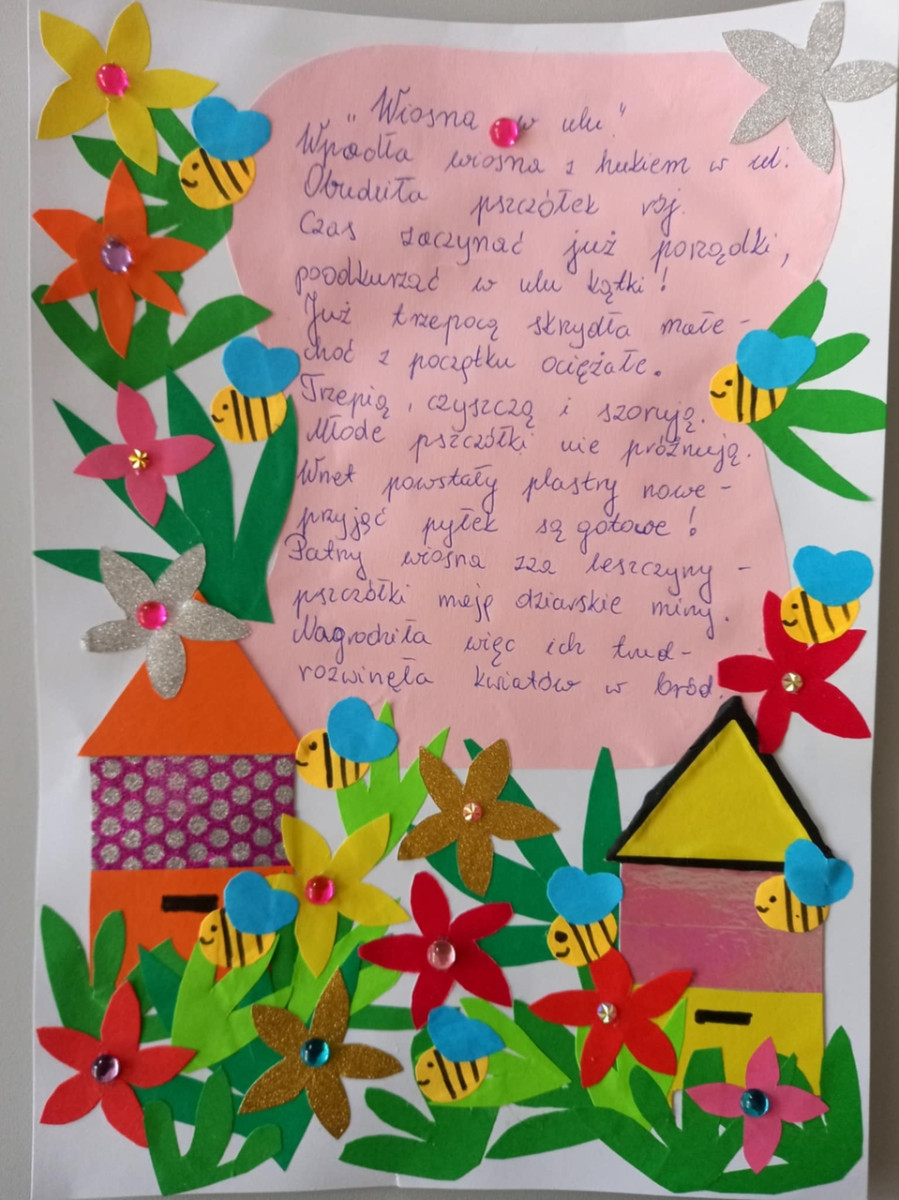 „Wiosna w ulu."
Wpadła wiosna z hukiem w ul:
Obudziła pszczółek rój.
Czas zaczynać już porządki,
poodkurzać w ulu kątki!
Już trzepocą skrzydła małe -
choć z początku ociężałe.
Trzepią, czyszczą i szorują.
Młode pszczółki nie próżnują.
Wnet powstały plastry nowe -
przyjąć pyłek są gotowe!
Patrzy wiosna zza leszczyny -
pszczółki mają dziarskie miny.
Nagrodziła więc ich trud -
rozwinęła kwiatów w bród.